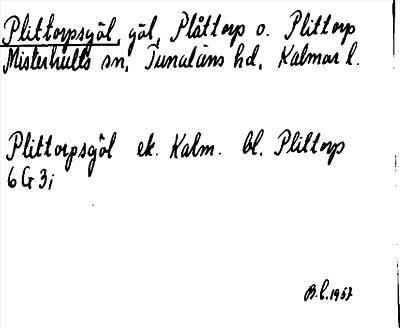 Plittorpsgöl, göl, Plåttorp o. Plittorp
Misterhults sn, Tunaläns hd, Kalmar l.
Plittorpsgöl ek. Kalm. bl. Plittorp
6G3i
B.L. 1957